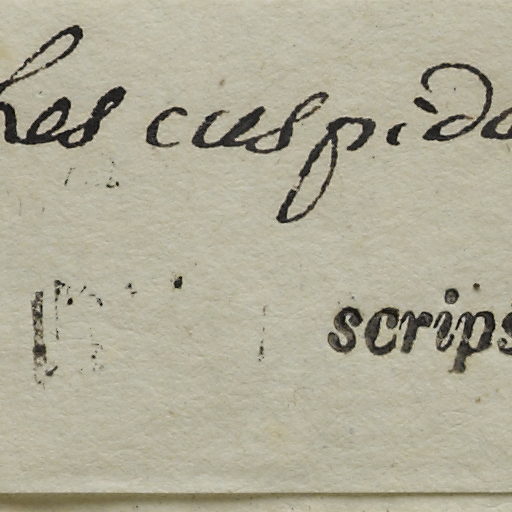 hes cuspida
scrips